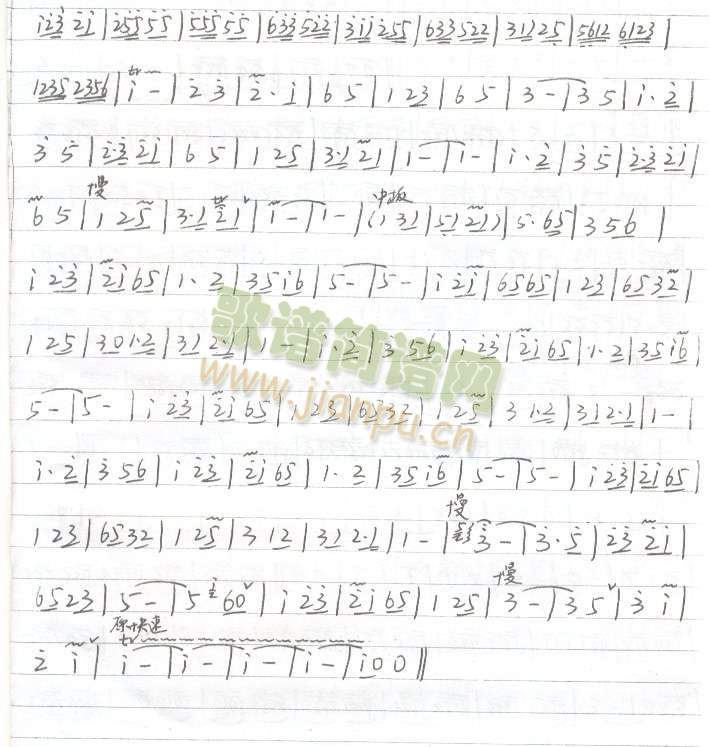 i̇2̇3̇ 2̇i̇ | 2̇55 55 | 555 55 | 633 522 | 3i̇i̇ 255 | 633522 | 31125 | 5612 6123 |
1235 2356 | tr i̇ - | 2̇ 3̇ | 2̇· i̇ | 6 5 | 1 23 | 6 5 | 3 - | 3 5 | i̇· 2̇ |
3̇ 5̇ | 2̇·3̇ 2̇i̇ | 6 5 | 1 25 | 3·1 21 | 1 - | 1 - | i̇· 2̇ | 3̇ 5̇ | 2̇·3̇ 2̇i̇ |
慢 中板
6 5 | 1 25 | 3·1 21 ˅ | 1 - | 1 - | (1 31 | 51 21) | 5·65 | 3 56 |
i̇ 2̇3̇ | 2̇i̇ 65 | 1· 2 | 35i̇6 | 5 - | 5 - | i̇ 2̇i̇ | 6565 | 1 23 | 6532 |
歌谱简谱网
1 25 | 301·2 | 312·1 | 1 - | i̇· 2̇ | 3̇ 56 | i̇ 2̇3̇ | 2̇i̇ 65 | 1· 2 | 35i̇6 |
www.jianpu.cn
5 - | 5 - | i̇ 2̇3̇ | 2̇i̇ 65 | 1 23 | 6532 | 1 25 | 3 1·2 | 312·1 | 1 - |
i̇· 2̇ | 3̇ 56 | i̇ 2̇3̇ | 2̇i̇ 65 | 1· 2 | 35i̇6 | 5 - | 5 - | i̇ 2̇3̇ | 2̇i̇65 |
慢
1 23 | 6532 | 1 25 | 3 12 | 312·1 | 1 - | 3̇ - | 3̇· 5̇ | 2̇3̇ 2̇i̇ |
慢
6523 | 5 - | 5 60 ˅ | i̇ 2̇3̇ | 2̇i̇ 65 | 1 25 | 3 - | 3 5 ˅ | 3̇ i̇ |
原快速
2̇ i̇ ˅ | tr i̇ - | i̇ - | i̇ - | i̇ - | i̇00 ‖